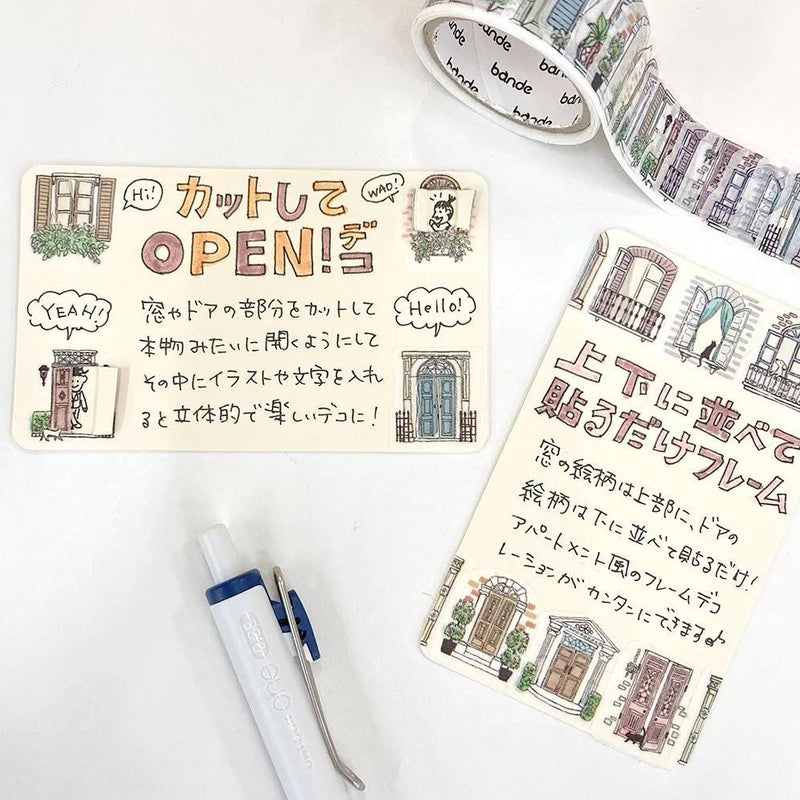 bande
bande
bande
bande
bande
Hi!
カットして
WAO!
OPEN!デコ
YEAH!
Hello!
窓やドアの部分をカットして
本物みたいに開くようにして
その中にイラストや文字を入れ
ると立体的で楽しいデコに!
上下に並べて
貼るだけフレーム
窓の絵柄は上部に、ドアの
絵柄は下に並べて貼るだけ!
アパートメント風のフレームデコ
レーションがカンタンにできます♪
uni-ball one